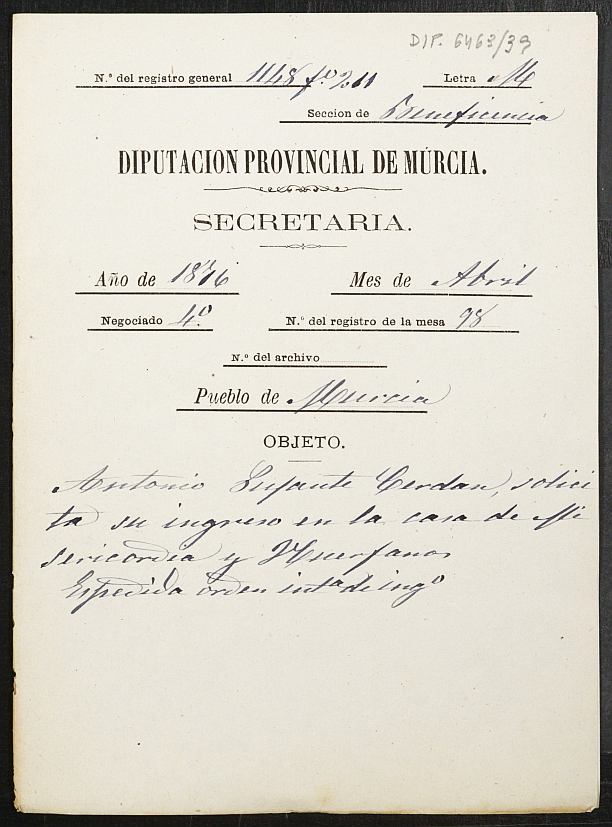 DIP. 6463/39
N.º del registro general 1148 fº 211 Letra M
Seccion de Beneficencia
DIPUTACION PROVINCIAL DE MÚRCIA.
SECRETARIA.
Año de 1876 Mes de Abril
Negociado 4.º N.º del registro de la mesa 98
N.º del archivo
Pueblo de Murcia
OBJETO.
Antonio Infante Cerdan, solici
ta su ingreso en la casa de Mi
sericordia y Huerfanos
Espedida orden intª de ingº